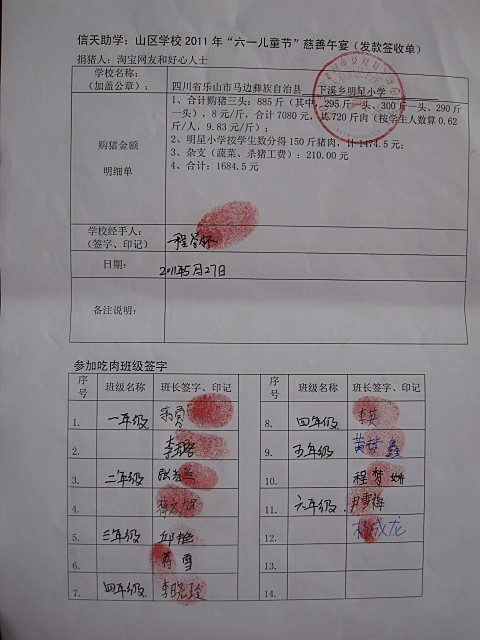 信天助学：山区学校 2011 年“六一儿童节”慈善午宴（发款签收单）
捐猪人：淘宝网友和好心人士
学校名称：
（加盖公章）：
四川省乐山市马边彝族自治县 下溪乡明星小学
购猪金额
明细单
1、合计购猪三头：885 斤（其中，295 斤一头、300 斤一头、290 斤
一头），8 元/斤，合计 7080 元，共 720 斤肉（按学生人数算 0.62
斤/人，9.83 元/斤）；
2、明星小学按学生数分得 150 斤猪肉，计 1474.5 元；
3、杂支（蔬菜、杀猪工费）：210.00 元
4、合计：1684.5 元
学校经手人：
（签字、印记）
日期：
2011年5月27日
备注说明：
参加吃肉班级签字
序号 班级名称 班长签字、印记 序号 班级名称 班长签字、印记
1. 一年级
8. 四年级 李英
2.
9. 五年级 黄 鑫
3. 二年级
10. 程梦娇
4.
11. 六年级 尹雪梅
5. 三年级 邱艳
12. 杨成龙
6. 蒋雪
13.
7. 四年级 李晓玲
14.